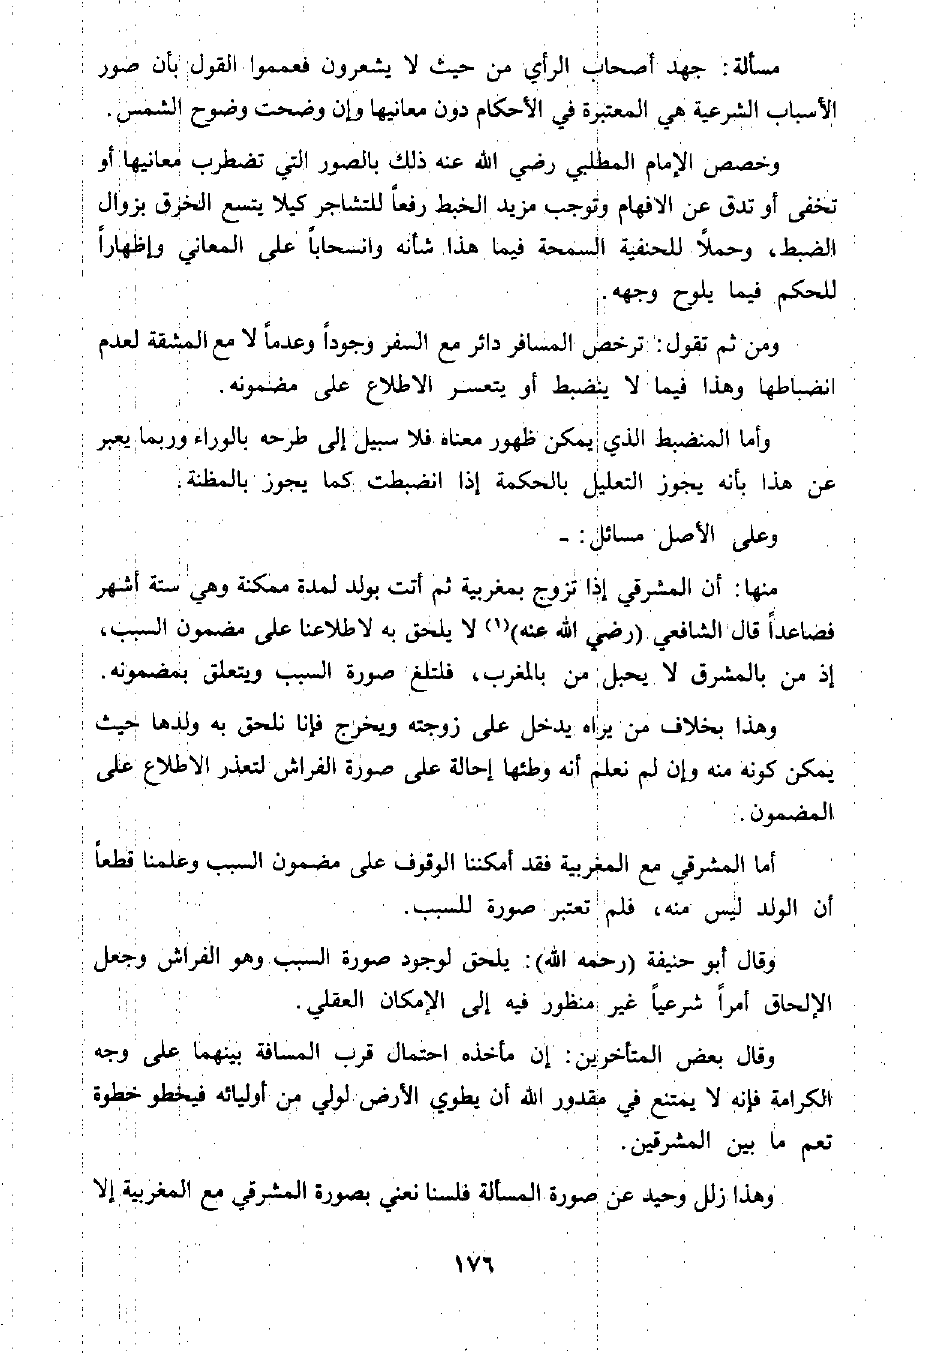 مسألة: جهد أصحاب الرأي من حيث لا يشعرون فعمموا القول بأن صور
الأسباب الشرعية هي المعتبرة في الأحكام دون معانيها وإن وضحت وضوح الشمس.
وخصص الإمام المطلبي رضي الله عنه ذلك بالصور التي تضطرب معانيها أو
تخفى أو تدق عن الافهام وتوجب مزيد الخبط رفعاً للتشاجر كيلا يتسع الخرق بزوال
الضبط، وحملاً للحنفية السمحة فيما هذا شأنه وانسحاباً على المعاني وإظهاراً
للحكم فيما يلوح وجهه.
ومن ثم تقول: ترخص المسافر دائر مع السفر وجوداً وعدماً لا مع المشقة لعدم
انضباطها وهذا فيما لا ينضبط أو يتعسر الاطلاع على مضمونه.
وأما المنضبط الذي يمكن ظهور معناه فلا سبيل إلى طرحه بالوراء وربما يعبر
عن هذا بأنه يجوز التعليل بالحكمة إذا انضبطت كما يجوز بالمظنة.
وعلى الأصل مسائل: -
منها: أن المشرقي إذا تزوج بمغربية ثم أتت بولد لمدة ممكنة وهي ستة أشهر
فصاعداً قال الشافعي (رضي الله عنه)(١) لا يلحق به لاطلاعنا على مضمون السبب،
إذ من بالمشرق لا يحبل من بالمغرب، فلتلغ صورة السبب ويتعلق بمضمونه.
وهذا بخلاف من يراه يدخل على زوجته ويخرج فإنا نلحق به ولدها حيث
يمكن كونه منه وإن لم نعلم أنه وطئها إحالة على صورة الفراش لتعذر الاطلاع على
المضمون.
أما المشرقي مع المغربية فقد أمكننا الوقوف على مضمون السبب وعلمنا قطعاً
أن الولد ليس منه، فلم تعتبر صورة للسبب.
وقال أبو حنيفة (رحمه الله): يلحق لوجود صورة السبب وهو الفراش وجعل
الإلحاق أمراً شرعياً غير منظور فيه إلى الإمكان العقلي.
وقال بعض المتأخرين: إن مأخذه احتمال قرب المسافة بينهما على وجه
الكرامة فإنه لا يمتنع في مقدور الله أن يطوي الأرض لولي من أوليائه فيخطو خطوة
تعم ما بين المشرقين.
وهذا زلل وحيد عن صورة المسألة فلسنا نعني بصورة المشرقي مع المغربية إلا
١٧٦